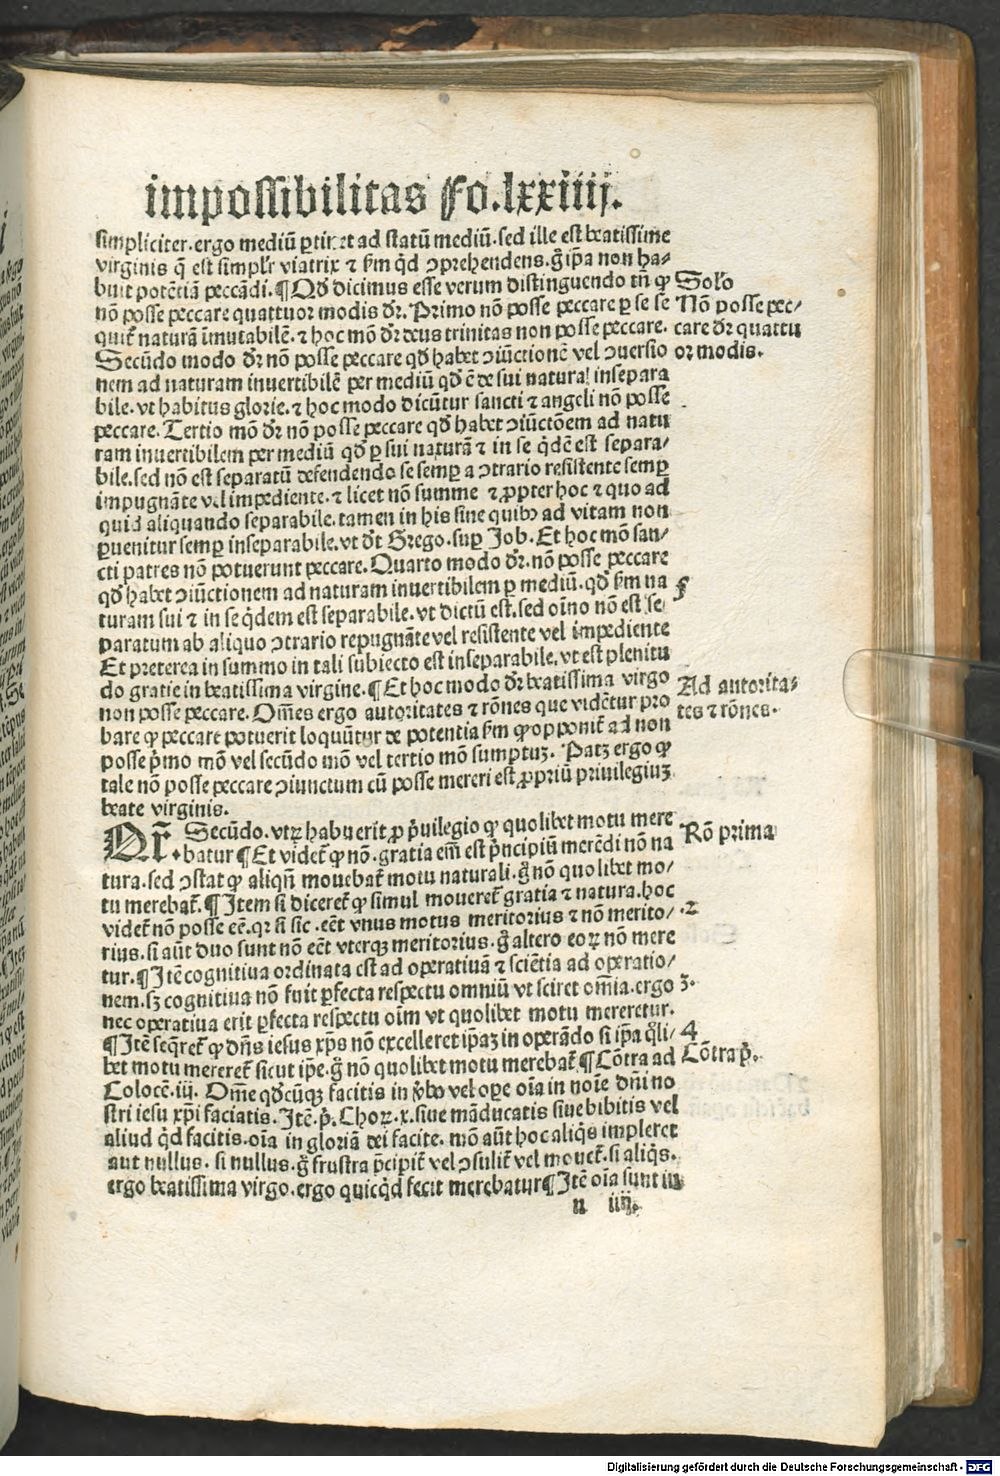 impossibilitas Fo.lxxiiij.
simpliciter.ergo mediū ꝑtinet ad statū mediū.sed ille est beatissime
virginis q̄ est simpl'r viatrix ⁊ s̄m q̇d ꝯprehendens.g̊ ip̄a non ha⸗
buit potētiā peccādi.¶Qd̓ dicimus esse verum distinguendo tn̄ ꝙ
nō posse peccare quattuor modis dr̄. Primo nō posse peccare ꝑ se se
quit̄ naturā īmutabilē.⁊ hoc mō dr̄ deus trinitas non posse peccare.
Secūdo modo dr̄ nō posse peccare qd̓ habet ꝯiūctionē vel ꝯuersio
nem ad naturam inuertibilē per mediū qd̓ ē de sui natura insepara
bile.vt habitus glorie.⁊ hoc modo dicūtur sancti ⁊ angeli nō posse
peccare. Tertio mō dr̄ nō posse peccare qd̓ habet ꝯiūctōem ad natu
ram inuertibilem per mediū qd̓ ꝑ sui naturā ⁊ in se q̇dē est separa⸗
bile.sed nō est separatū defendendo se semꝑ a ꝯtrario resistente semꝑ
impugnāte vel impediente.⁊ licet nō summe ⁊ ꝓpter hoc ⁊ quo ad
quid aliquando separabile.tamen in his sine quibꝰ ad vitam non
ꝑuenitur semꝑ inseparabile.vt dt̄ Grego.suꝑ Job. Et hoc mō san⸗
cti patres nō potuerunt peccare. Quarto modo dr̄.nō posse peccare
qd̓ habet ꝯiūctionem ad naturam inuertibilem ꝑ mediū.qd̓ s̄m na
turam sui ⁊ in se q̇dem est separabile.vt dictū est.sed oīno nō est se
paratum ab aliquo ꝯtrario repugnāte vel resistente vel impediente
Et preterea in summo in tali subiecto est inseparabile.vt est plenitu
do gratie in beatissima virgine.¶Et hoc modo dr̄ beatissima virgo
non posse peccare. Om̄es ergo autoritates ⁊ rōnes que vidētur pro
bare ꝙ peccare potuerit loquūtur de potentia s̄m ꝙ opponit̄ ad non
posse p̄mo mō vel secūdo mō vel tertio mō sumptuꝫ. Patꝫ ergo ꝙ
tale nō posse peccare ꝯiunctum cū posse mereri est ꝓpriū priuilegiuꝫ
beate virginis.
Qr̄. Secūdo.vtꝝ habuerit ꝓ p̄uilegio ꝙ quolibet motu mere
batur ¶Et videt̄ ꝙ nō.gratia em̄ est p̄ncipiū merēdi nō na
tura.sed ꝯstat ꝙ aliqn̄ mouebat̄ motu naturali.g̊ nō quolibet mo⸗
tu merebat̄.¶Item si diceret̄ ꝙ simul moueret̄ gratia ⁊ natura.hoc
videt̄ nō posse eē.qꝛ si sic.eēt vnus motus meritorius ⁊ nō merito⸗
rius.si aūt duo sunt nō eēt vterqꝫ meritorius.g̊ altero eoꝝ nō mere
tur.¶Itē cognitiua ordinata est ad operatiuā ⁊ sciētia ad operatio⸗
nem.sꝫ cognitiua nō fuit ꝑfecta respectu omniū vt sciret om̄ia.ergo
nec operatiua erit ꝑfecta respectu oīm vt quolibet motu mereretur.
¶Itē seq̄ret̄ ꝙ dn̄s iesus xp̄s nō excelleret ip̄aꝫ in operādo si ip̄a q̊li⸗
bet motu mereret̄ sicut ip̄e.g̊ nō quolibet motu merebat̄ ¶Cōtra ad
Coloce̅.iij. Om̄e qd̓cūqꝫ facitis in v̓bo vel oꝑe oīa in noīe dn̄i no
stri iesu xp̄i faciatis. Itē.p̄.Choꝝ.x.siue māducatis siue bibitis vel
aliud q̇d facitis.oīa in gloriā dei facite. mō aūt hoc aliq̇s impleret
aut nullus.si nullus.g̊ frustra p̄cipit̄ vel ꝯsulit̄ vel mouet̄.si aliq̇s.
ergo beatissima virgo.ergo quicq̇d fecit merebatur ¶Itē oīa sunt in
n iiij.
Solo
Nō posse pec⸗
care dr̄ quattu
or modis.
Ad autorita⸗
tes ⁊ rōnes.
Rō prima
2
3.
4
Cōtra p̄.
Digitalisierung gefördert durch die Deutsche Forschungsgemeinschaft - DFG